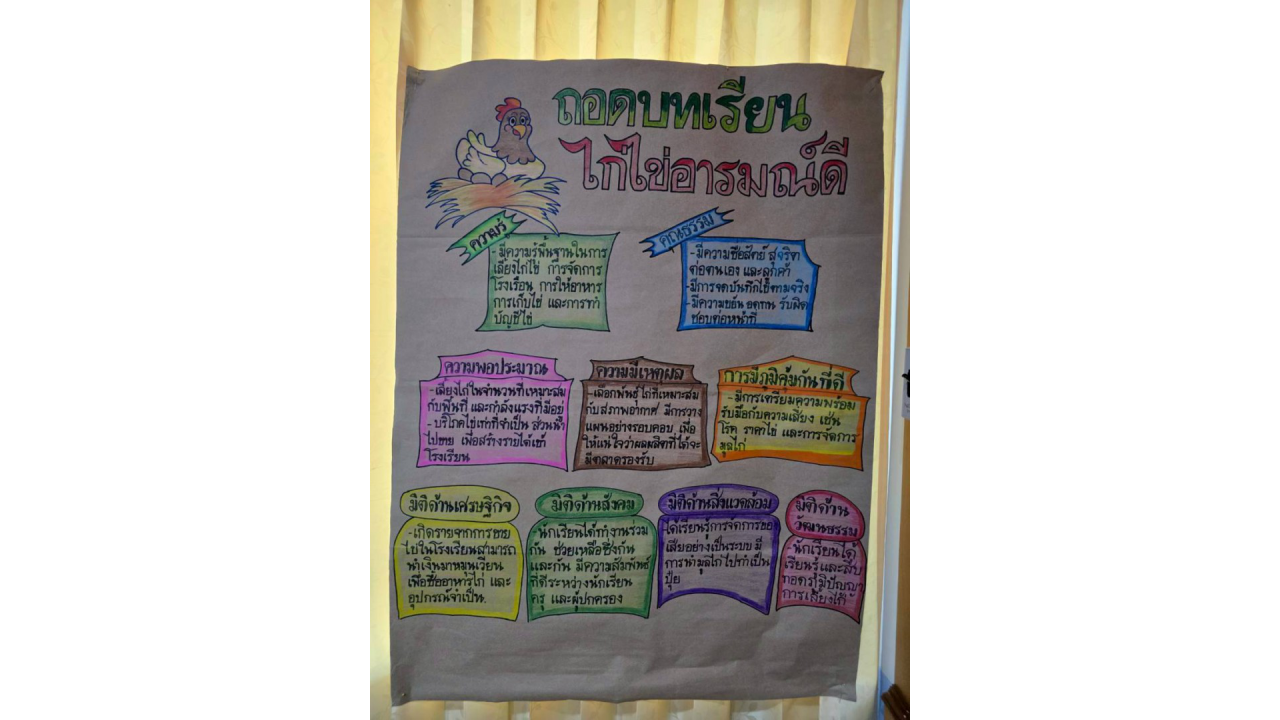 ถอดบทเรียน
ไก่ไข่อารมณ์ดี
ความรู้
-มีความรู้พื้นฐานในการ
เลี้ยงไก่ไข่ การจัดการ
โรงเรือน การให้อาหาร
การเก็บไข่ และการทำ
บัญชีไข่
คุณธรรม
-มีความซื่อสัตย์ สุจริต
ต่อตนเอง และลูกค้า
-มีการจดบันทึกไข่ตามจริง
-มีความขยัน อดทน รับผิด
ชอบต่อหน้าที่
ความพอประมาณ
-เลี้ยงไก่ในจำนวนที่เหมาะสม
กับพื้นที่ และกำลังแรงที่มีอยู่
-บริโภคไข่เท่าที่จำเป็น ส่วนนำ
ไปขาย เพื่อสร้างรายได้เข้า
โรงเรียน
ความมีเหตุผล
-เลือกพันธุ์ไก่ที่เหมาะสม
กับสภาพอากาศ มีการวาง
แผนอย่างรอบคอบ เพื่อ
ให้แน่ใจว่าผลผลิตที่ได้จะ
มีตลาดรองรับ
การมีภูมิคุ้มกันที่ดี
-มีการเตรียมความพร้อม
รับมือกับความเสี่ยง เช่น
โรค ราคาไข่ และการจัดการ
มูลไก่
มิติด้านเศรษฐกิจ
-เกิดรายจากการขาย
ไข่ในโรงเรียนสามารถ
นำเงินมาหมุนเวียน
เพื่อซื้ออาหารไก่ และ
อุปกรณ์จำเป็น.
มิติด้านสังคม
-นักเรียนได้ทำงานร่วม
กัน ช่วยเหลือซึ่งกัน
และกัน มีความสัมพันธ์
ที่ดีระหว่างนักเรียน
ครู และผู้ปกครอง
มิติด้านสิ่งแวดล้อม
-ได้เรียนรู้การจัดการของ
เสียอย่างเป็นระบบ มี
การนำมูลไก่ไปทำเป็น
ปุ๋ย
มิติด้าน
วัฒนธรรม
-นักเรียนได้
เรียนรู้และสืบ
ทอดภูมิปัญญา
การเลี้ยงไก่